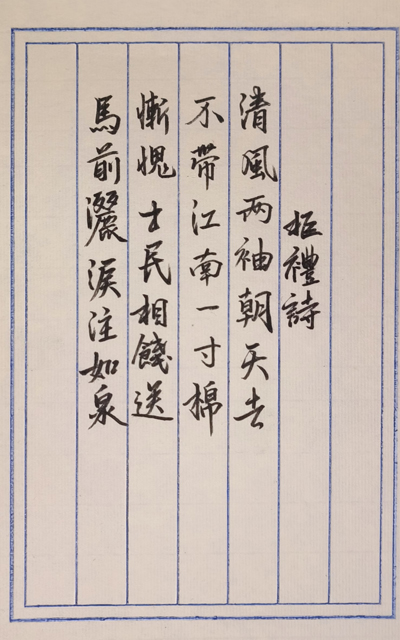 拒禮詩
清風兩袖朝天去
不帶江南一寸棉
慚愧士民相餞送
馬前灑淚注如泉